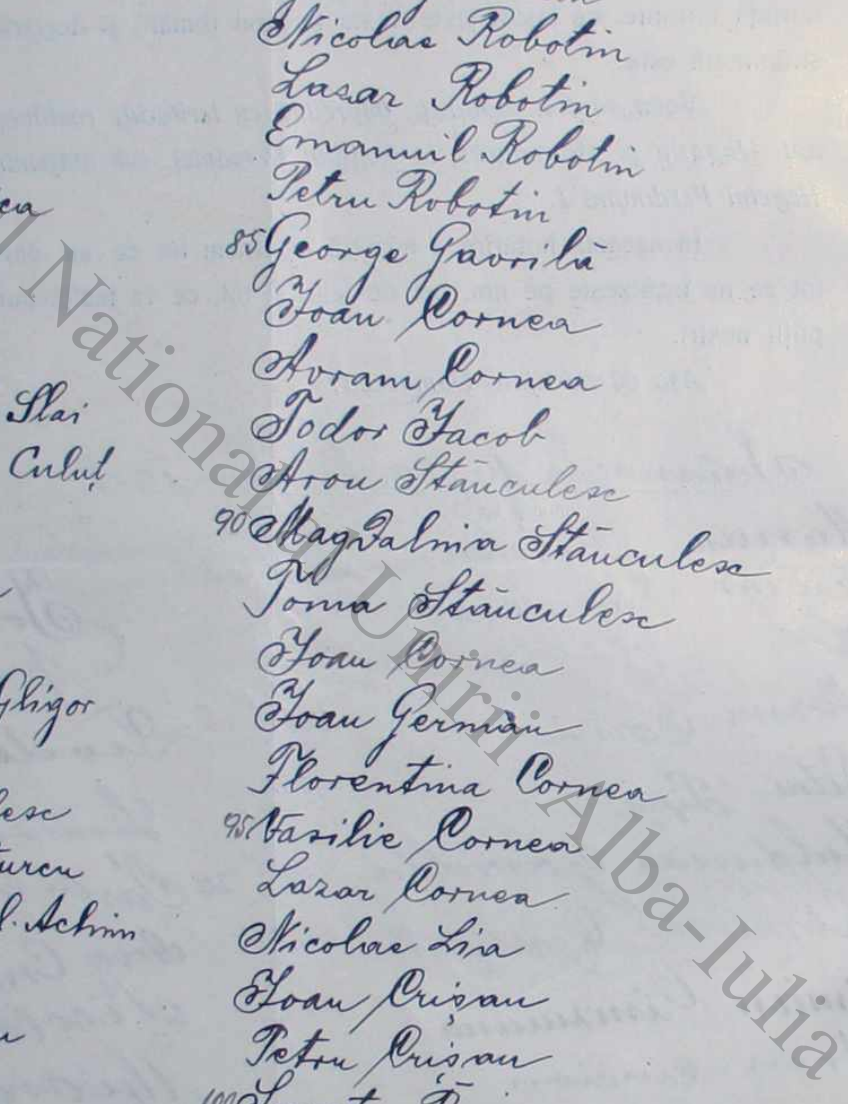 Nicolae Robotin
Lasar Robotin
Emanuil Robotin
Petru Robotin
85 George Gavrilă
Ioan Cornea
Avram Cornea
Todor Iacob
Aron Stănculesc
90 Magdalnia Stănculesc
Toma Stănculesc
Ioan Cornea
Ioan German
Florentina Cornea
95 Vasilie Cornea
Lazar Cornea
Nicolae Lia
Ioan Crișan
Petru Crișan
100
Slai
Culuț
Gligor
lesc
turcu
l. Achim
l Național al Unirii - Alba-Iulia